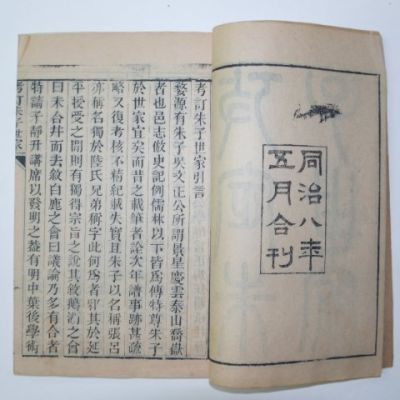 同治八年
五月合刊
考訂朱子世家引言
婺源有朱子吳文正公所謂景星慶雲泰山喬嶽
者也邑志倣史記例儒林以下皆爲傳特尊朱子
於世家宜矣而昔之載筆者論次年譜事跡甚疏
略又復考核不精紀載失實且朱子以名稱張呂
亦稱名獨於陸氏兄弟稱字此何爲者耶其於延
平授受之間則有獨得宗旨之說其敘鵝湖之會
曰未合幷而去敘白鹿之會曰議論乃多有合者
特請子靜升講席以發明之葢有明中葉後學術
考訂朱子世家